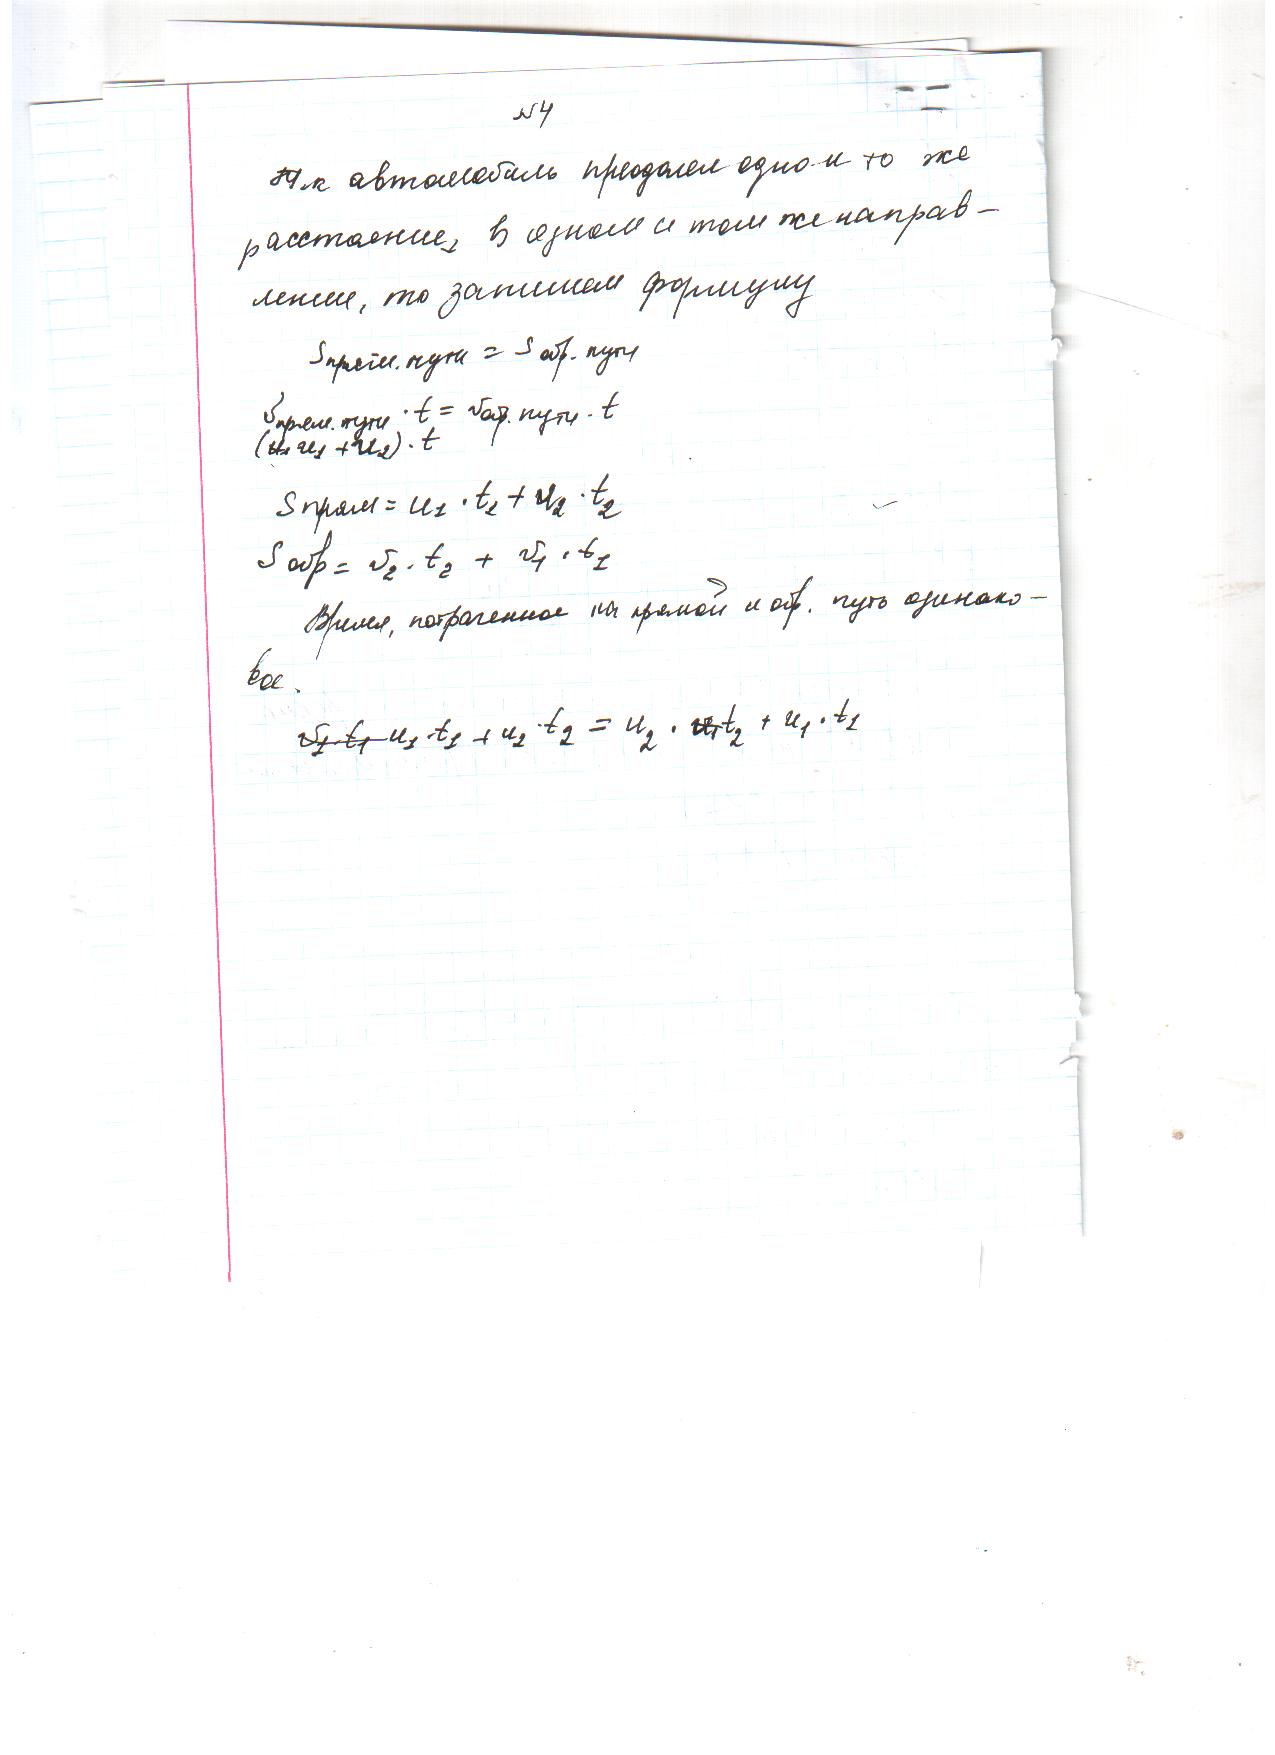 №4
Т.к автомобиль преодолел одно и то же
расстояние, в одном и том же направ-
лении, то запишем формулу
S прям. пути = S обр. пути
v прям. пути · t = v обр. пути · t
(u₁ + u₂) · t
S прям = u₁ · t₁ + u₂ · t₂
S обр = v₂ · t₂ + v₁ · t₁
Время, потраченное на прямой и обр. путь одинако-
вое.
v₁ · t₁ u₁ · t₁ + u₂ · t₂ = u₂ · t₂ + u₁ · t₁